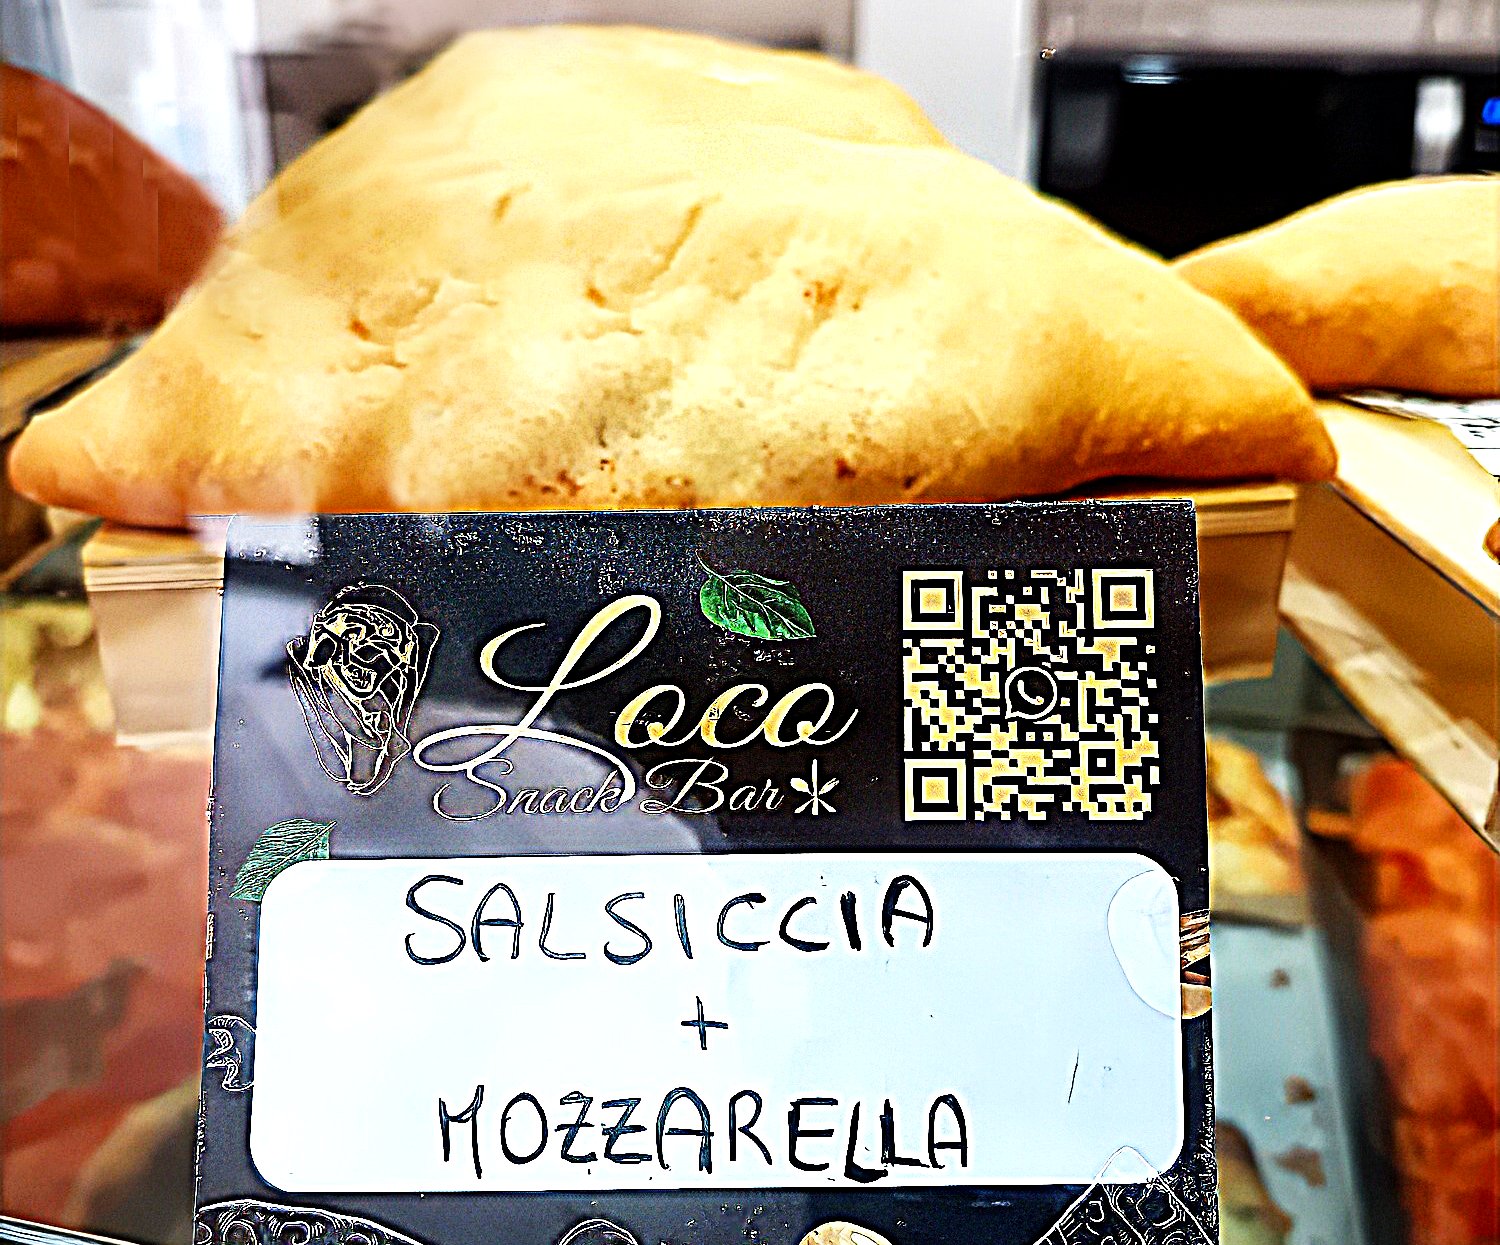 Loco
Snack Bar
SALSICCIA
+
MOZZARELLA